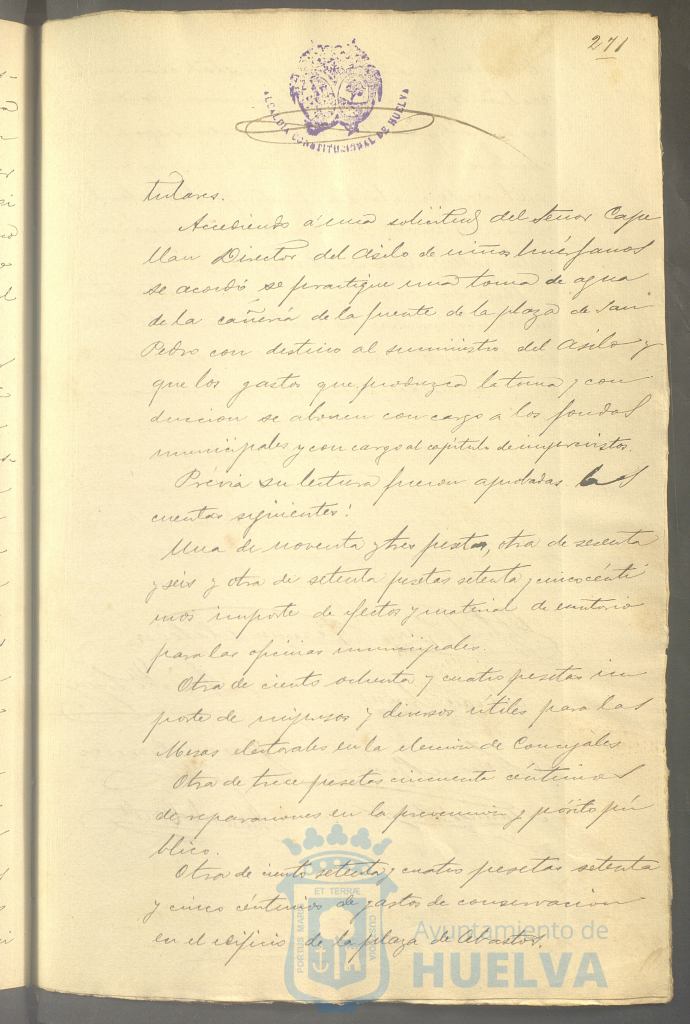 271
ALCALDIA CONSTITUCIONAL DE HUELVA
tulares.
Accediendo á una solicitud del Señor Cape
llan Director del Asilo de niños huérfanos
se acordó se practique una toma de agua
de la cañería de la fuente de la plaza de San
Pedro con destino al suministro del Asilo y
que los gastos que produzca la toma y con
duccion se abonen con cargo a los fondos
municipales y con cargo al capítulo de imprevistos.
Prévia su lectura fueron aprobadas las
cuentas siguientes:
Una de noventa y tres pesetas, otra de sesenta
y seis y otra de setenta pesetas setenta y cinco cénti
mos importe de efectos y material de escritorio
para las oficinas municipales.
Otra de ciento ochenta y cuatro pesetas im
porte de impresos y diversos útiles para las
Mesas electorales en la eleccion de Concejales
Otra de trece pesetas cincuenta céntimos
de reparaciones en la prevencion y pósito pú
blico.
Otra de ciento setenta y cuatro pesetas setenta
y cinco céntimos de gastos de conservacion
en el edificio de la plaza de Abastos.
PORTUS MARIS ET TERRAE CUSTODIA
Ayuntamiento de
HUELVA